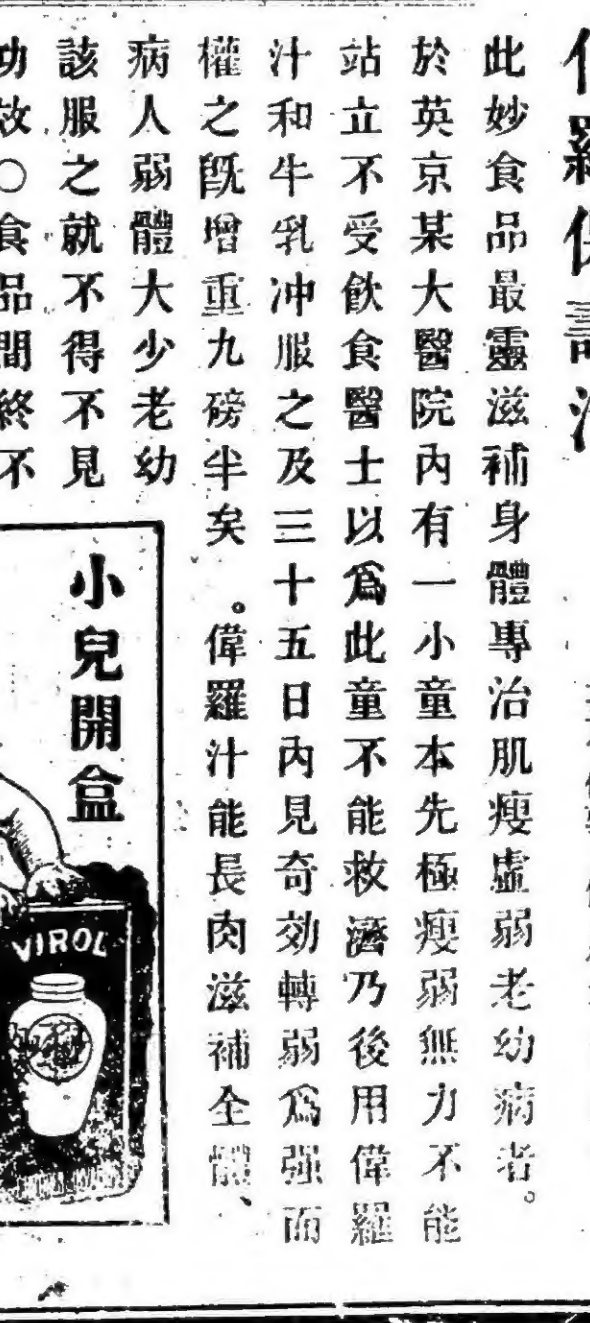 偉羅保壽汁
此妙食品最靈滋補身體專治肌瘦虛弱老幼病者。
於英京某大醫院內有一小童本先極瘦弱無力不能
站立不受飲食醫士以爲此童不能救濟乃後用偉羅
汁和牛乳冲服之及三十五日內見奇効轉弱爲强而
權之旣增重九磅半矣。偉羅汁能長肉滋補全體、
病人弱體大少老幼
該服之就不得不見
功效○食品間終不
小兒開盒
VIROL